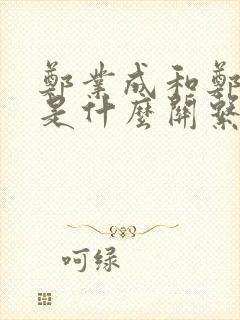 鄭業成和鄭
是什麼關繫
呵绿